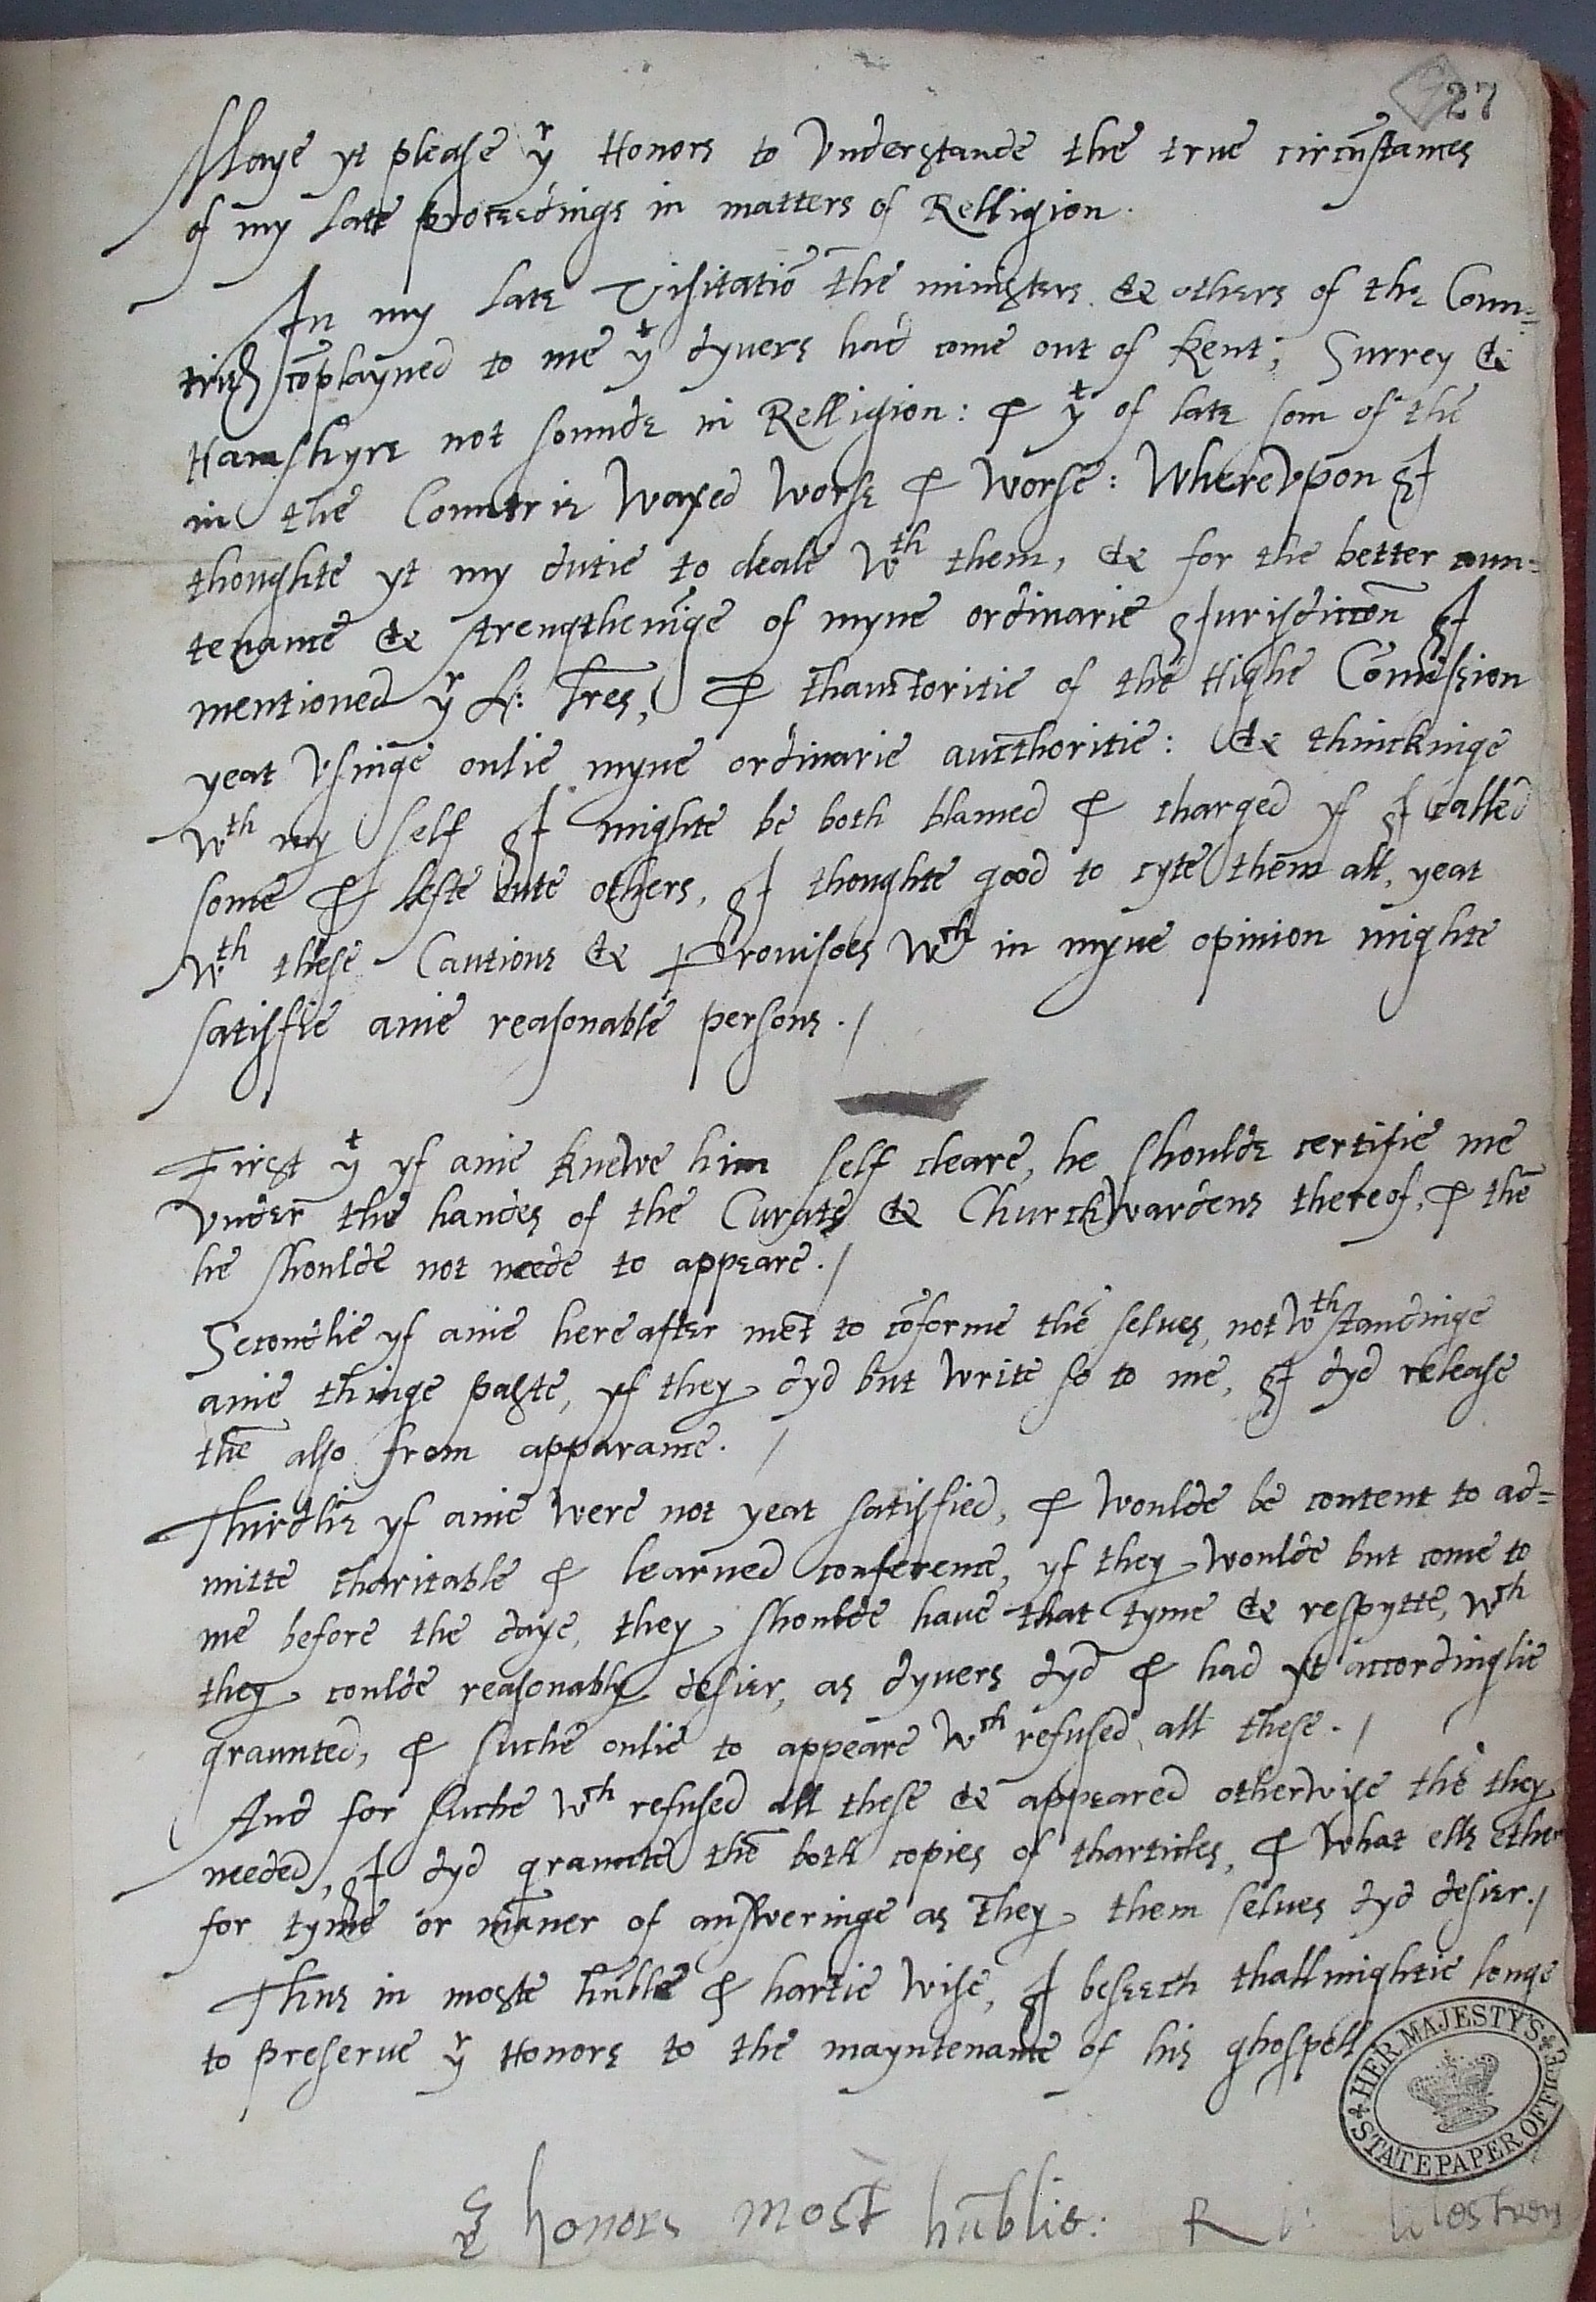 27
Maye yt please yr Honors to Vnderstande the true circūstances
of my late proceedings in matters of Relligion.
In my late Visitatiō the ministers & others of the Coun=
trie cōplayned to me yt dyvers had come out of Kent, Surrey &
Hamshyre not sounde in Relligion: & yt of late som of the
in the Countrie Waxed Worse & Worse: WhereVpon I
thoughte yt my dutie to deale Wth them, & for the better coun=
tenance & strengtheninge of myne ordinarie Jurisdiccōn I
mentioned yr L: lr̄es, & thauctoritie of the Highe Comīssion
yeat Vsinge onlie myne ordinarie aucthoritie: & thinckinge
Wth my self I mighte be both blamed & charged yf I called
some & lefte oute others, I thoughte good to cyte them all, yeat
Wth these Cautions & Provisoes Wch in myne opinion mighte
satisfie anie reasonable persons./
First yt yf anie knewe him self cleare, he shoulde certifie me
Vnder the handes of the Curate & ChurchWardens thereof, & thē
he shoulde not neede to appeare./
Secondlie yf anie hereafter mēt to cōforme thē selves, notWthstandinge
anie thinge paste, yf they dyd but Write so to me, I dyd release
thē also from apparance./
Thirdlie yf anie Were not yeat satisfied, & Woulde be content to ad=
mitte charitable & learned conference, yf they Woulde but come to
me before the daye, they shoulde have that tyme & respytte, Wch
they coulde reasonably desier, as dyvers dyd & had yt accordinglie
graunted, & suche onlie to appeare Wch refused all these./
And for suche Wch refused all these & appeared otherwise thē they
needed, I dyd graunte thē both copies of tharticles, & What ells ether
for tyme or māner of ansWeringe as They them selves dyd desier./
Thus in moste hūble & hartie Wise, I beseech thallmightie longe
to preserve yr Honors to the mayntenance of his ghospell
HER MAJESTY'S
STATE PAPER OFFICE
honors most hūblie: Ri: